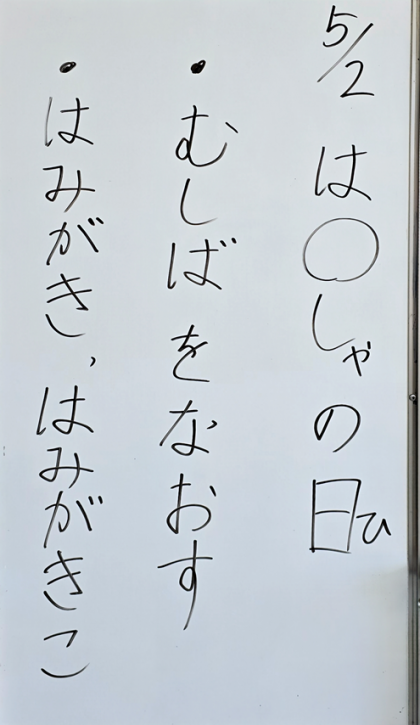 5/2 は○しゃの日ひ
・むしばをなおす
・はみがき、はみがきこ